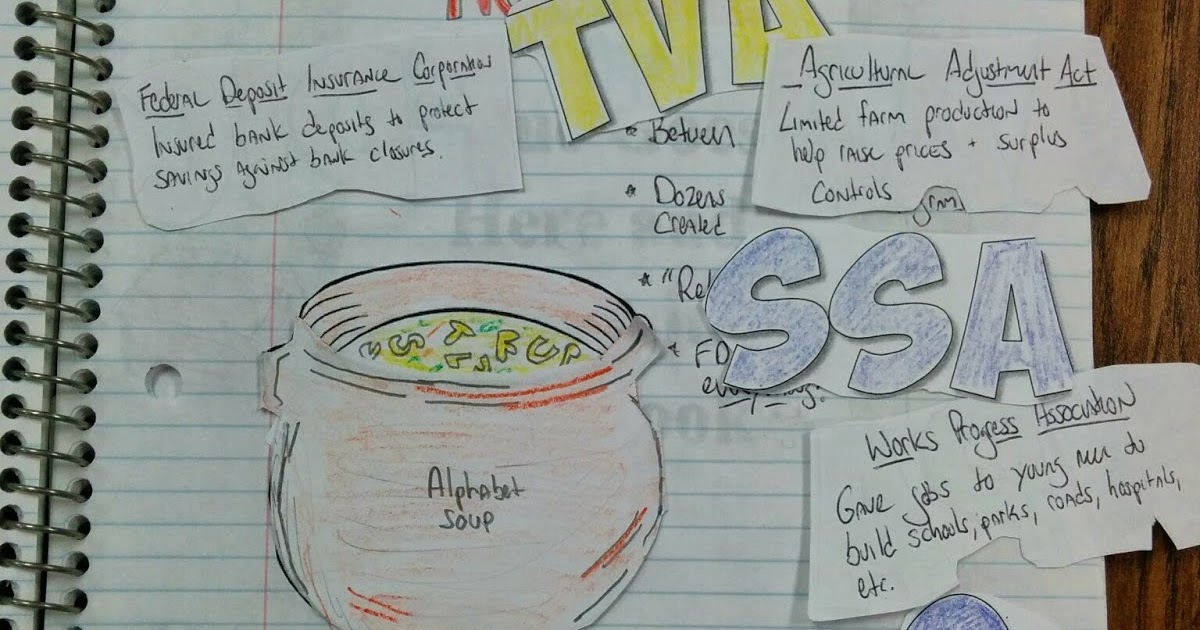 TVA
Federal Deposit Insurance Corporation
Insured bank deposits to protect
savings against bank closures.
Agricultural Adjustment Act
Limited farm production to
help raise prices + surplus
controls
* Between
* Dozens
Created
* "Rel
SSA
* FD
Alphabet
Soup
Works Progress Association
Gave jobs to young men to
build schools, parks, roads, hospitals,
etc.